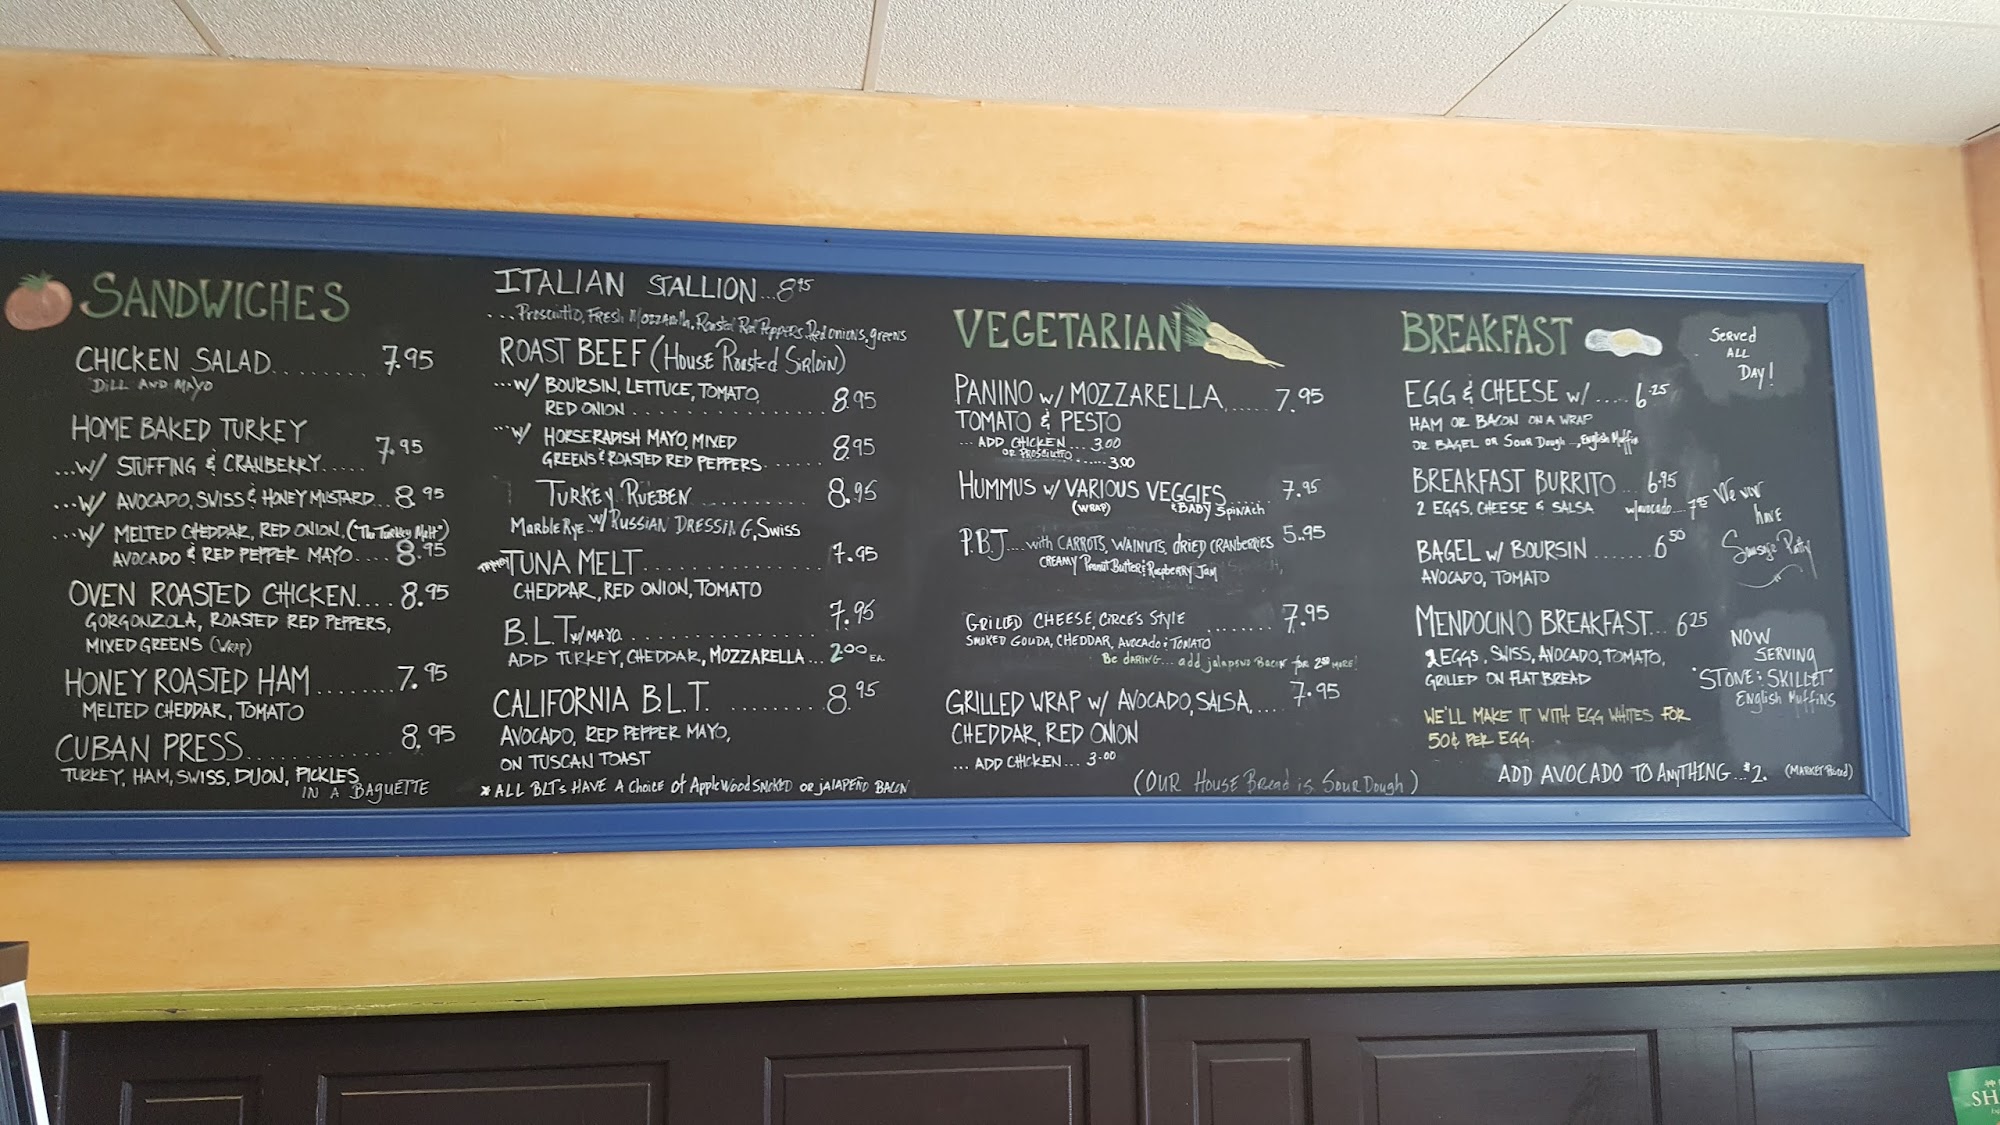 SANDWICHES
CHICKEN SALAD........ 7.95
DILL AND MAYO
HOME BAKED TURKEY
...W/ STUFFING & CRANBERRY..... 7.95
...W/ AVOCADO, SWISS & HONEY MUSTARD... 8.95
...W/ MELTED CHEDDAR, RED ONION, ("The Turkey Melt")
AVOCADO & RED PEPPER MAYO.... 8.95
OVEN ROASTED CHICKEN.... 8.95
GORGONZOLA, ROASTED RED PEPPERS,
MIXED GREENS (WRAP)
HONEY ROASTED HAM........ 7.95
MELTED CHEDDAR, TOMATO
CUBAN PRESS............. 8.95
TURKEY, HAM, SWISS, DIJON, PICKLES
IN A BAGUETTE
ITALIAN STALLION...8.95
...Prosciutto, FRESH Mozzarella, Roasted Red Peppers, Red onions, greens
ROAST BEEF (House Roasted SIRLOIN)
...W/ BOURSIN, LETTUCE, TOMATO,
RED ONION................ 8.95
...W/ HORSERADISH MAYO, MIXED
GREENS & ROASTED RED PEPPERS...... 8.95
TURKEY RUEBEN........... 8.95
Marble Rye... W/ RUSSIAN DRESSING, SWISS
TUNA MELT.............. 7.95
CHEDDAR, RED ONION, TOMATO
B.L.T. W/MAYO............... 7.95
ADD TURKEY, CHEDDAR, MOZZARELLA... 2.00 EA.
CALIFORNIA B.L.T. ......... 8.95
AVOCADO, RED PEPPER MAYO,
ON TUSCAN TOAST
* ALL BLTs HAVE A CHOICE OF AppleWood SMOKED OR JALAPEÑO BACON
VEGETARIAN
PANINO W/ MOZZARELLA...... 7.95
TOMATO & PESTO
... ADD CHICKEN.... 3.00
OR PROSCIUTTO...... 3.00
HUMMUS W/ VARIOUS VEGGIES...... 7.95
(WRAP) & BABY SPINACH
P.B.J.... with CARROTS, WALNUTS, DRIED CRANBERRIES 5.95
CREAMY Peanut Butter & Raspberry Jam
GRILLED CHEESE, CIRCE'S STYLE ........ 7.95
SMOKED GOUDA, CHEDDAR, AVOCADO & TOMATO
Be DARING... add jalapeno BACON for 2.50 MORE!
GRILLED WRAP W/ AVOCADO, SALSA,.... 7.95
CHEDDAR, RED ONION
... ADD CHICKEN... 3.00
(OUR HOUSE Bread is SOUR Dough)
BREAKFAST
Served
ALL
DAY!
EGG & CHEESE W/ ..... 6.25
HAM OR BACON ON A WRAP
OR BAGEL OR SOUR Dough ..., English Muffin
BREAKFAST BURRITO... 6.95
2 EGGS, CHEESE & SALSA w/avocado... 7.95
BAGEL W/ BOURSIN ....... 6.50
AVOCADO, TOMATO
MENDOCINO BREAKFAST... 6.25
2 EGGS, SWISS, AVOCADO, TOMATO,
GRILLED ON FLAT BREAD
WE'LL MAKE IT WITH EGG WHITES FOR
50¢ PER EGG.
We now
have
Sausage Patty
NOW
SERVING
"STONE & SKILLET"
English Muffins
ADD AVOCADO TO ANYTHING...$2. (MARKET Priced)
SH